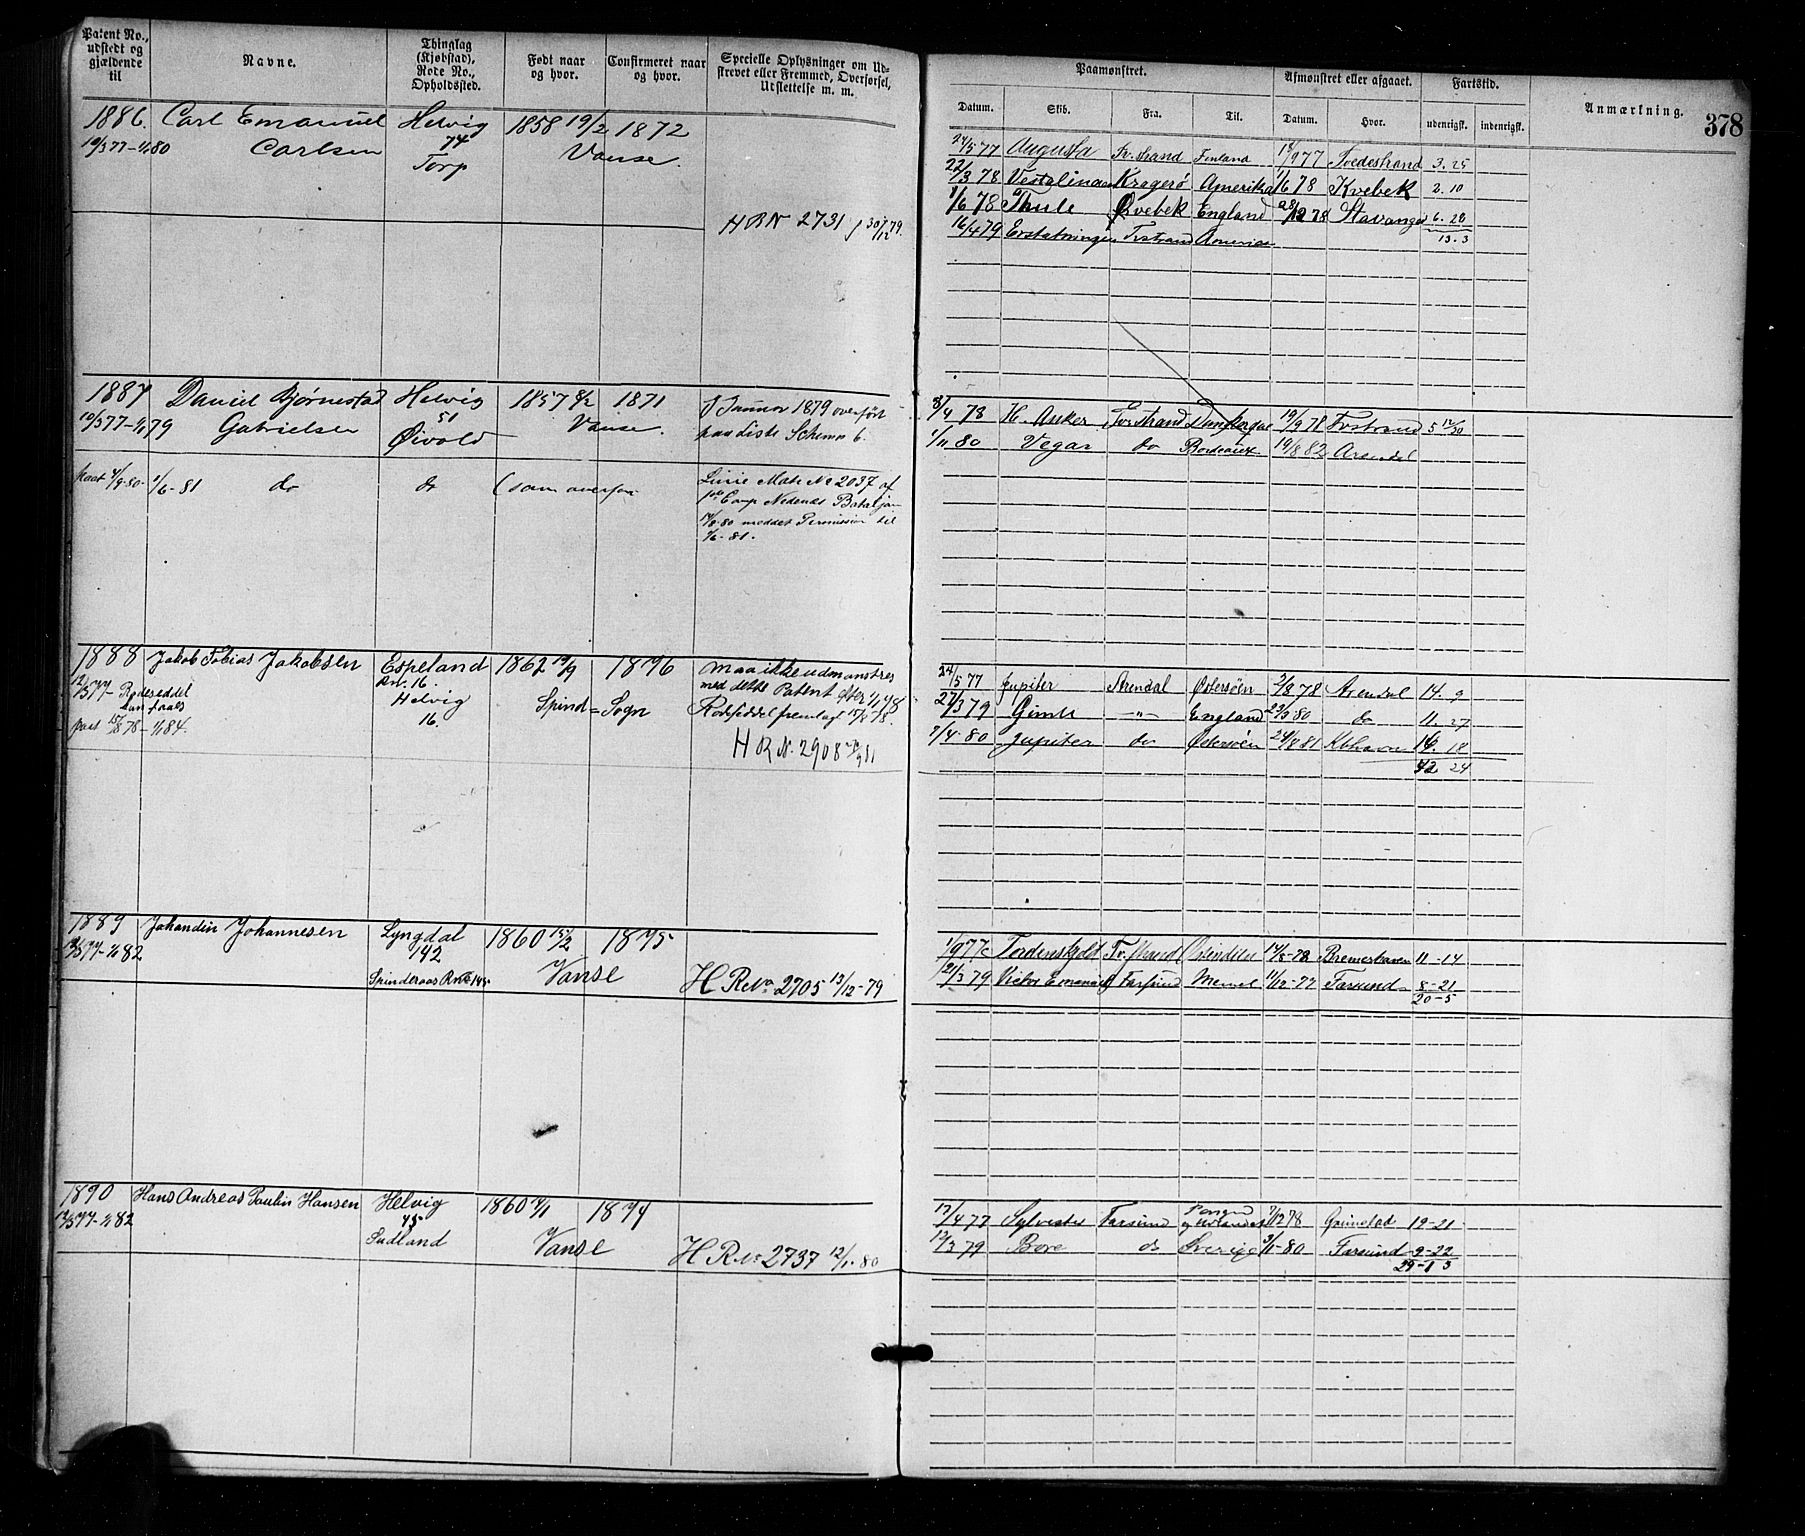 Patent No., udstedt og gjældende til
Navne.
Thinglag (Kjøbstad), Rode No., Opholdssted.
Født naar og hvor.
Confirmeret naar og hvor.
Specielle Oplysninger om Udstrevet eller Fremmed, Overførsel, Udslettelse m. m.
Paamønstret.
Datum. Skib. Fra. Til.
Afmønstret eller afgaaet.
Datum. Hvor.
Fartstid.
udenrigsk. indenrigsk.
Anmærkning.
378
1886. Carl Emanuel Helvig 1858 19/2 1872
10/3 77 - 1/1 80 Carlsen 74 Vanse.
Torp
HRN 2731 30/12 79.
24/5 77 Augusta Fr.strand Finland 77 Tvedestrand 3. 25
22/3 78 Kragerø Amerika 1/6 78 Kvebek 2. 10
1/6 78 Thule Qvebek England 28/12 78 Stavanger 6. 28
13. 3
16/4 79 Erstatningen America
1887 Daniel Bjørnestad Helvig 1857 8/2 1871
10/3 77 - 1/1 79 Gabrielsen 51 Vanse.
Øivold
1879 overført
paa Liste Schema 6.
1/6-81 do do (som ovenfor
Linie Mats No 2037 af
Comp Nedenæs Bataljon
80 meddet Permission til
1/6-81.
3/4 78 H. Anker 19/9 78 5 12/30
1/11 80 Vegar do Bordeaux 19/8 82 Arendal
1888 Jakob Tobias Jakobsen Espeland 1862 19/9 1876
Rn. 16
Rodeseddel
Helvig Spind - Sogn
16.
maa ikke udmønstres
med dette Patent efter 1/1 78
Rodeseddel fremlagt
HRN. 2908
24/5 77 Jupiter Arendal Østersøen 2/8 78 Arendal 14. 9
27/3 79 Gimle -"- England 23/3 80 do 11. 27
7/4 80 Jupiter do Østersøen 24/8 81 Kbhavn 16. 18
42 24
1889 Johandin Johannesen Lyngdal 1860 15/2 1875
77 - 1/1 82 142 Vanse
HRNo 2705 13/12-79
1/9 77 Tordenskjold Bremerhaven 11 - 14
21/3 79 Victor Emanuel Farsund Memel 11/12-77 Farsund 8-21
20-5
1890 Hans Andreas Paulin Hansen Helvig 1860 1874
77 - 1/1 82 45 Vanse
Sudland
HRNr 2737 12/1-80
17/4 77 Sylvester Farsund 78 Grimstad 19-21
79 Bore do Sverige 3/1-80 Farsund 9-22
29-13